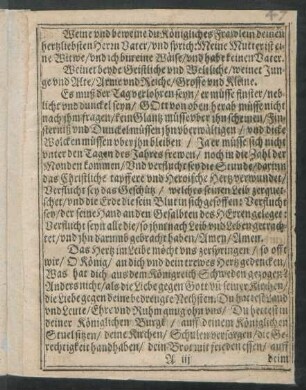 Weine vnd beweine du Königliches Frawlein deinen
hertzliebsten Herrn Vater/ vnd sprich: Meine Mutter ist ei-
ne Witwe/ vnd ich bin eine Wäise/ vnd hab keinen Vater.
Weinet beyde Geistliche vnd Weltliche/ weinet Jun-
ge vnd Alte/ Arme vnd Reiche/ Grosse vnd Kleine.
Es muß der Tag verlohren seyn/ er müsse finster/ neb-
licht vnd dunckel seyn/ GOtt von oben herab müsse nicht
nach jhm fragen/ kein Glantz müsse vber jhn scheinen/ Fin-
sternüß vnd Dunckel müssen jhn vberwältigen/ vnd dicke
Wolcken müssen vber jhn bleiben/ Ja er müsse sich nicht
vnter den Tagen des Jahres frewen/ noch in die Zahl der
Monden kommen/ Vnd verflucht sey die Stunde/ darinn
das Christliche tapffere vnd Heroische Hertz verwundet/
Verflucht sey das Geschütz/ welches seinen Leib zerquet-
schet/ vnd die Erde die sein Blut in sich gesoffen: Verflucht
sey/ der seine Hand an den Gesalbten des HErren geleget:
Verflucht seyn alle die/ so jhm nach Leib vnd Leben getrach-
tet/ vnd jhn darumb gebracht haben/ Amen/ Amen.
Das Hertz im Leibe möcht vns zerspringen/ so offt
wir/ O König/ an dich vnd dein trewes Hertz gedencken/
Was hat dich aus dem Königreich Schweden gezogen?
Anders nicht/ als die Liebe gegen Gott vnd seiner Kirchen/
die Liebe gegen deine bedrengte Nechsten. Du hattest Land
vnd Leute/ Ehre vnd Ruhm gnug ohn vns/ Du hettest in
deiner Königlichen Burgk/ auff deinem Königlichen
Stuel sitzen/ deine Kirchen/ Schulen versorgen/ die Ge-
rechtigkeit handhaben/ dein Brot mit frieden essen/ auff
A iij
deim